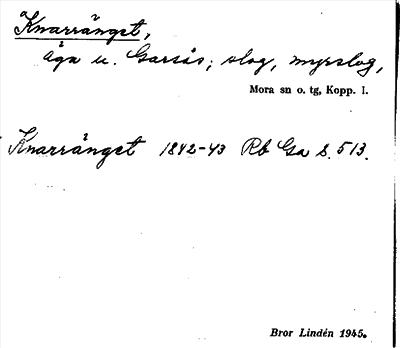 Knarränget,
äga u. Garsås; slog, myrslog,
Mora sn o. tg, Kopp. l.
Knarränget 1842-43 Rb Ga s. 513.
Bror Lindén 1945.